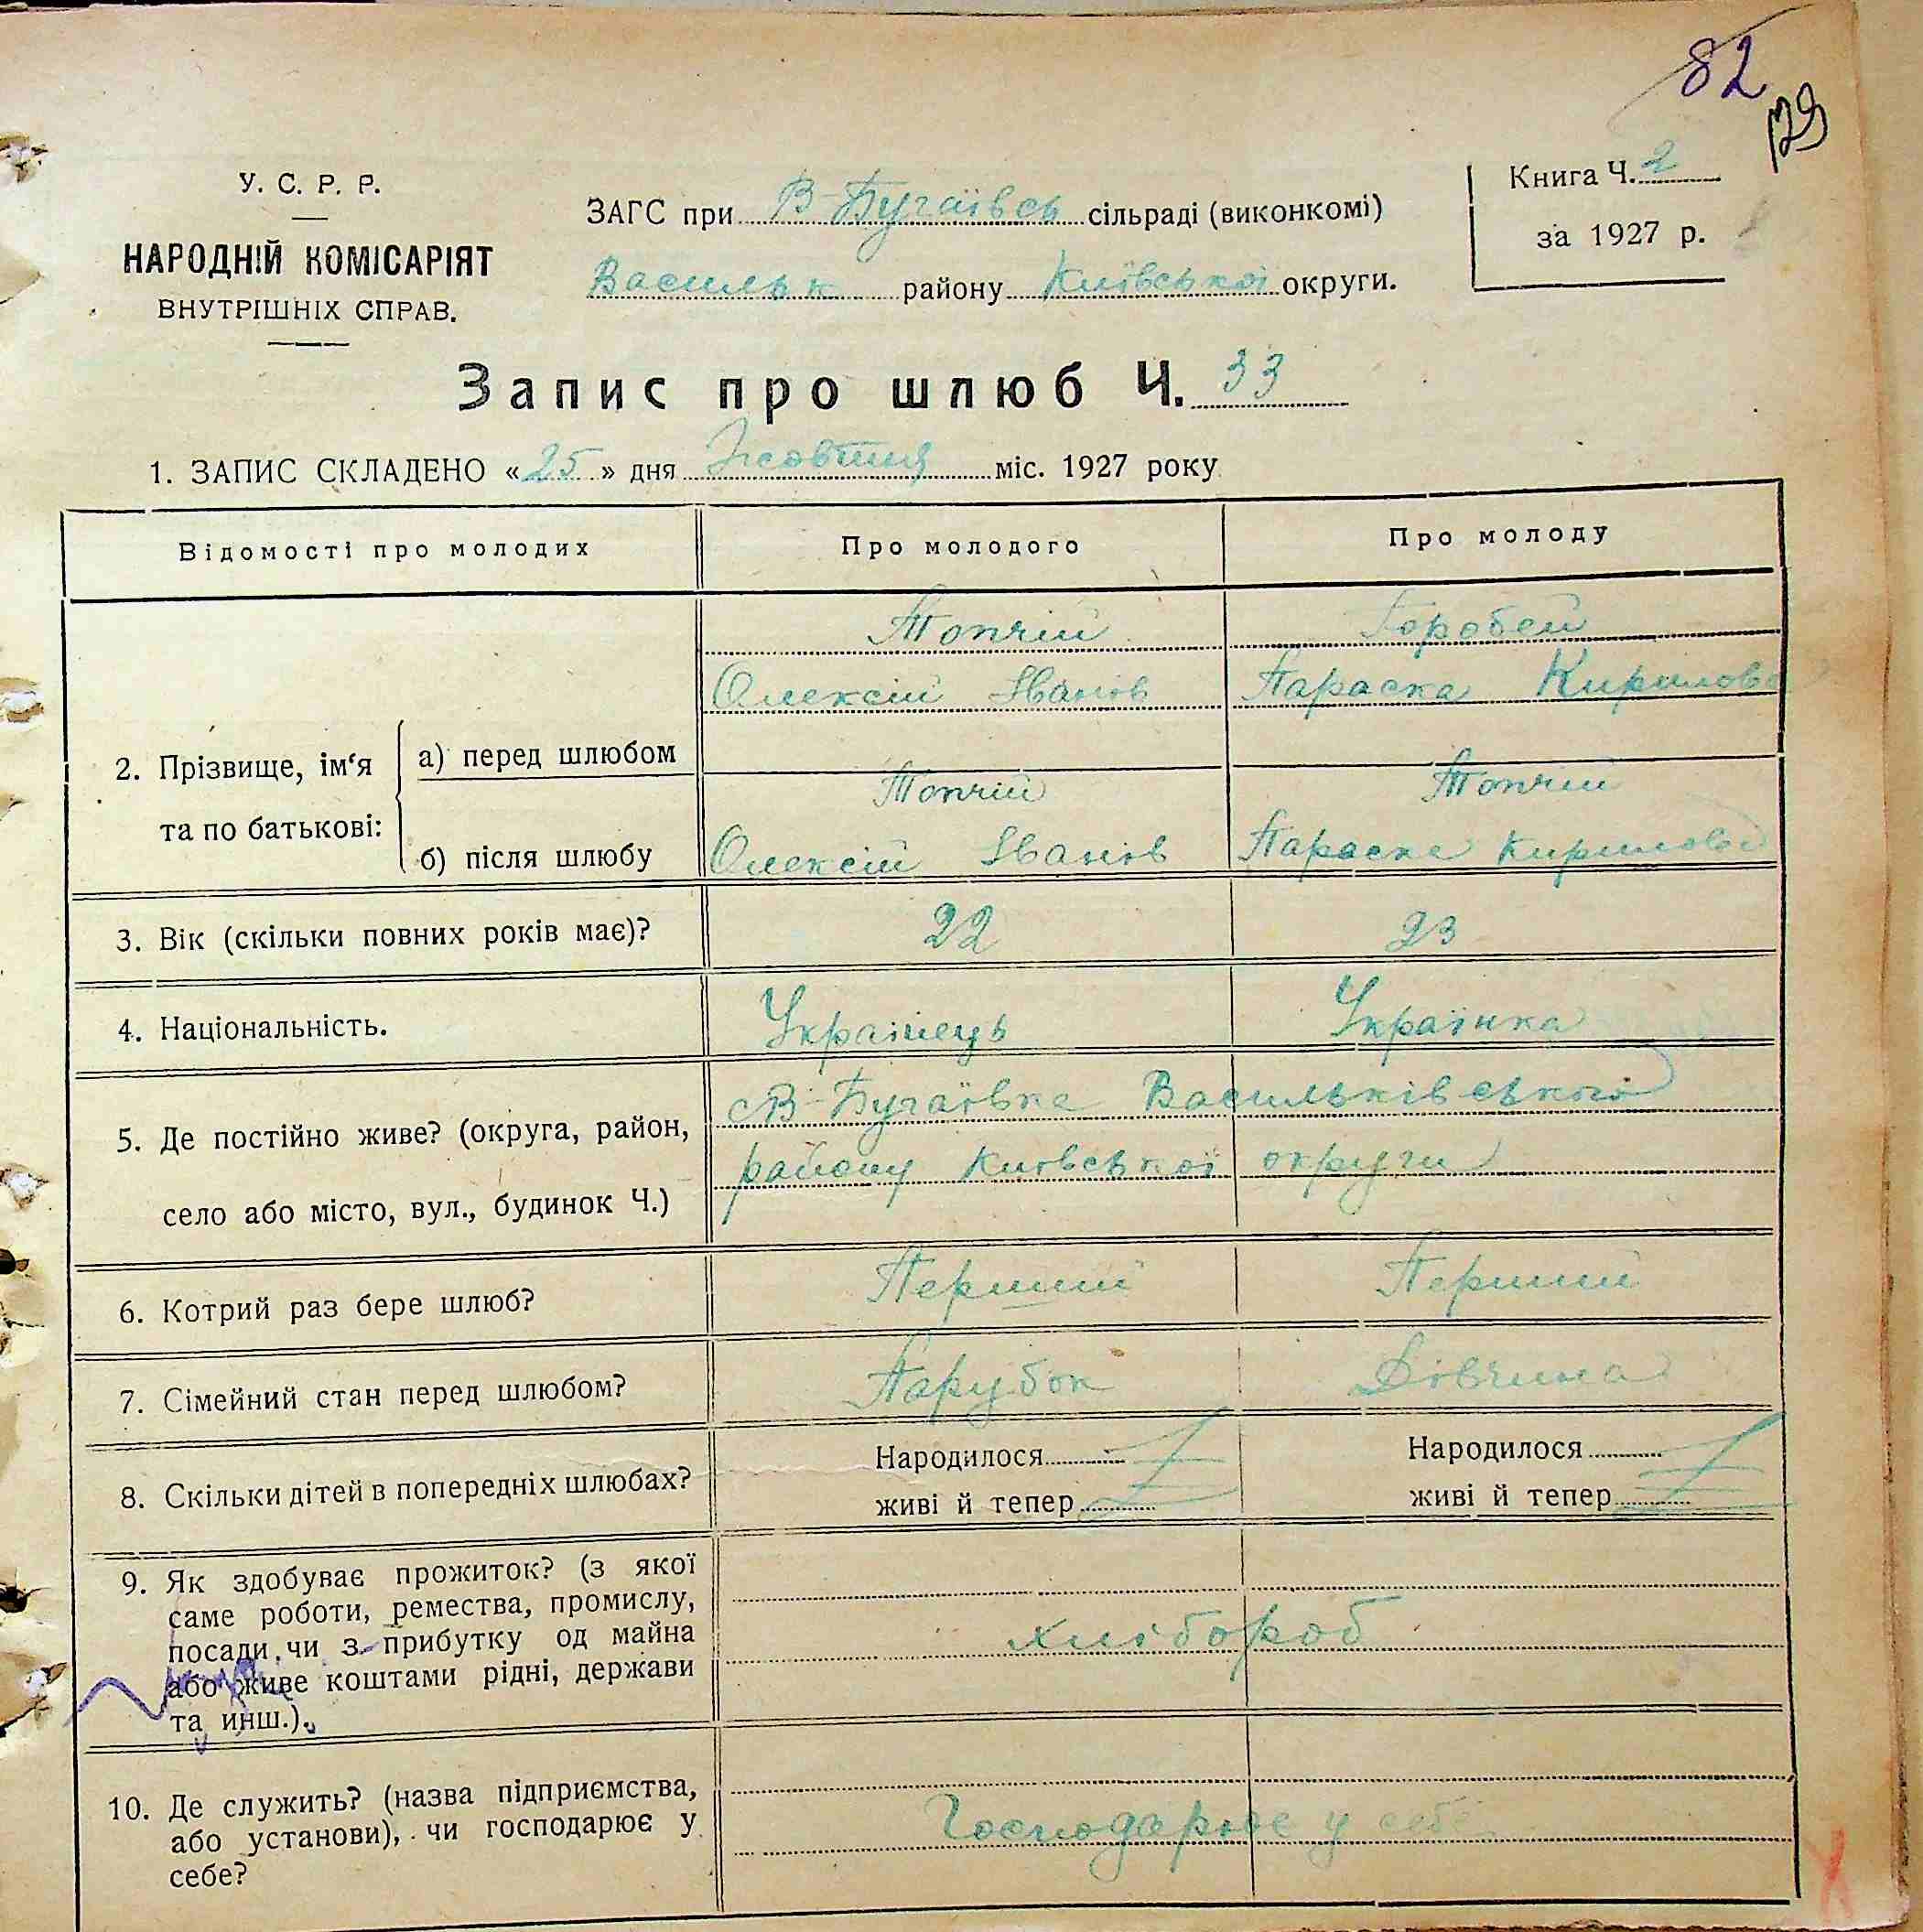 82
129
У. С. Р. Р.
НАРОДНІЙ КОМІСАРІЯТ
ВНУТРІШНІХ СПРАВ.
ЗАГС при В-Бугаївсь сільраді (виконкомі)
Васильк району Київської округи.
Книга Ч. 2
за 1927 р.
Запис про шлюб Ч. 33
1. ЗАПИС СКЛАДЕНО « 25 » дня Жовтня міс. 1927 року
Відомості про молодих Про молодого Про молоду
2. Прізвище, ім‘я та по батькові:
а) перед шлюбом
Топчій
Олексій Іванів
Горобей
Параска Кирилова
б) після шлюбу
Топчій
Олексій Іванів
Топчій
Параска Кирилова
3. Вік (скільки повних років має)? 22 23
4. Національність. Українець Українка
5. Де постійно живе? (округа, район,
село або місто, вул., будинок Ч.)
с В-Бугаївка Васильківської
району Київської округи
6. Котрий раз бере шлюб? Перший Перший
7. Сімейний стан перед шлюбом? Парубок Дівчина
8. Скільки дітей в попередніх шлюбах?
Народилося
живі й тепер
Народилося
живі й тепер
9. Як здобуває прожиток? (з якої
саме роботи, ремества, промислу,
посади чи з прибутку од майна
або живе коштами рідні, держави
та инш.).
хлібороб
10. Де служить? (назва підприємства,
або установи), чи господарює у
себе?
Господарює у себе